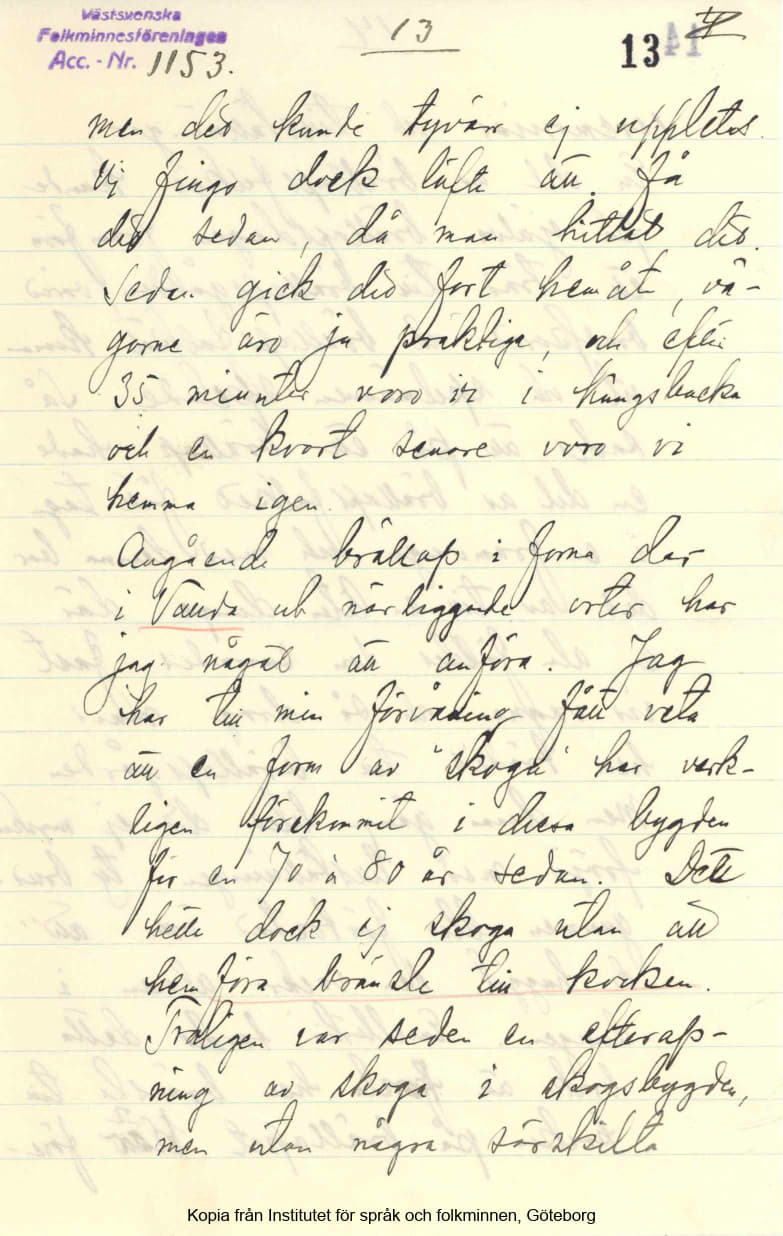 Västsvenska
Folkminnesföreningen
Acc. - Nr. 1153.
13
13
14
men det kunde tyvärr ej uppletas.
Vi fingo dock löfte att få
det sedan, då man hittat det.
Sedan gick det fort hemåt, vä-
garne äro ju präktiga, och efter
35 minuter voro vi i Kungsbacka
och en kvart senare voro vi
hemma igen.
Angående bröllop i forna dar
i Vallda och närliggande orter har
jag något att anföra. Jag
har till min förvåning fått veta
att en form av "skoga" har verk-
ligen förekommit i dessa bygder
för en 70 à 80 år sedan. Detta
hette dock ej skoga utan att
hemföra bränsle till kocken.
Troligen var seden en efterap-
ning av skoga i skogsbygden,
men utan några särskilta
Kopia från Institutet för språk och folkminnen, Göteborg